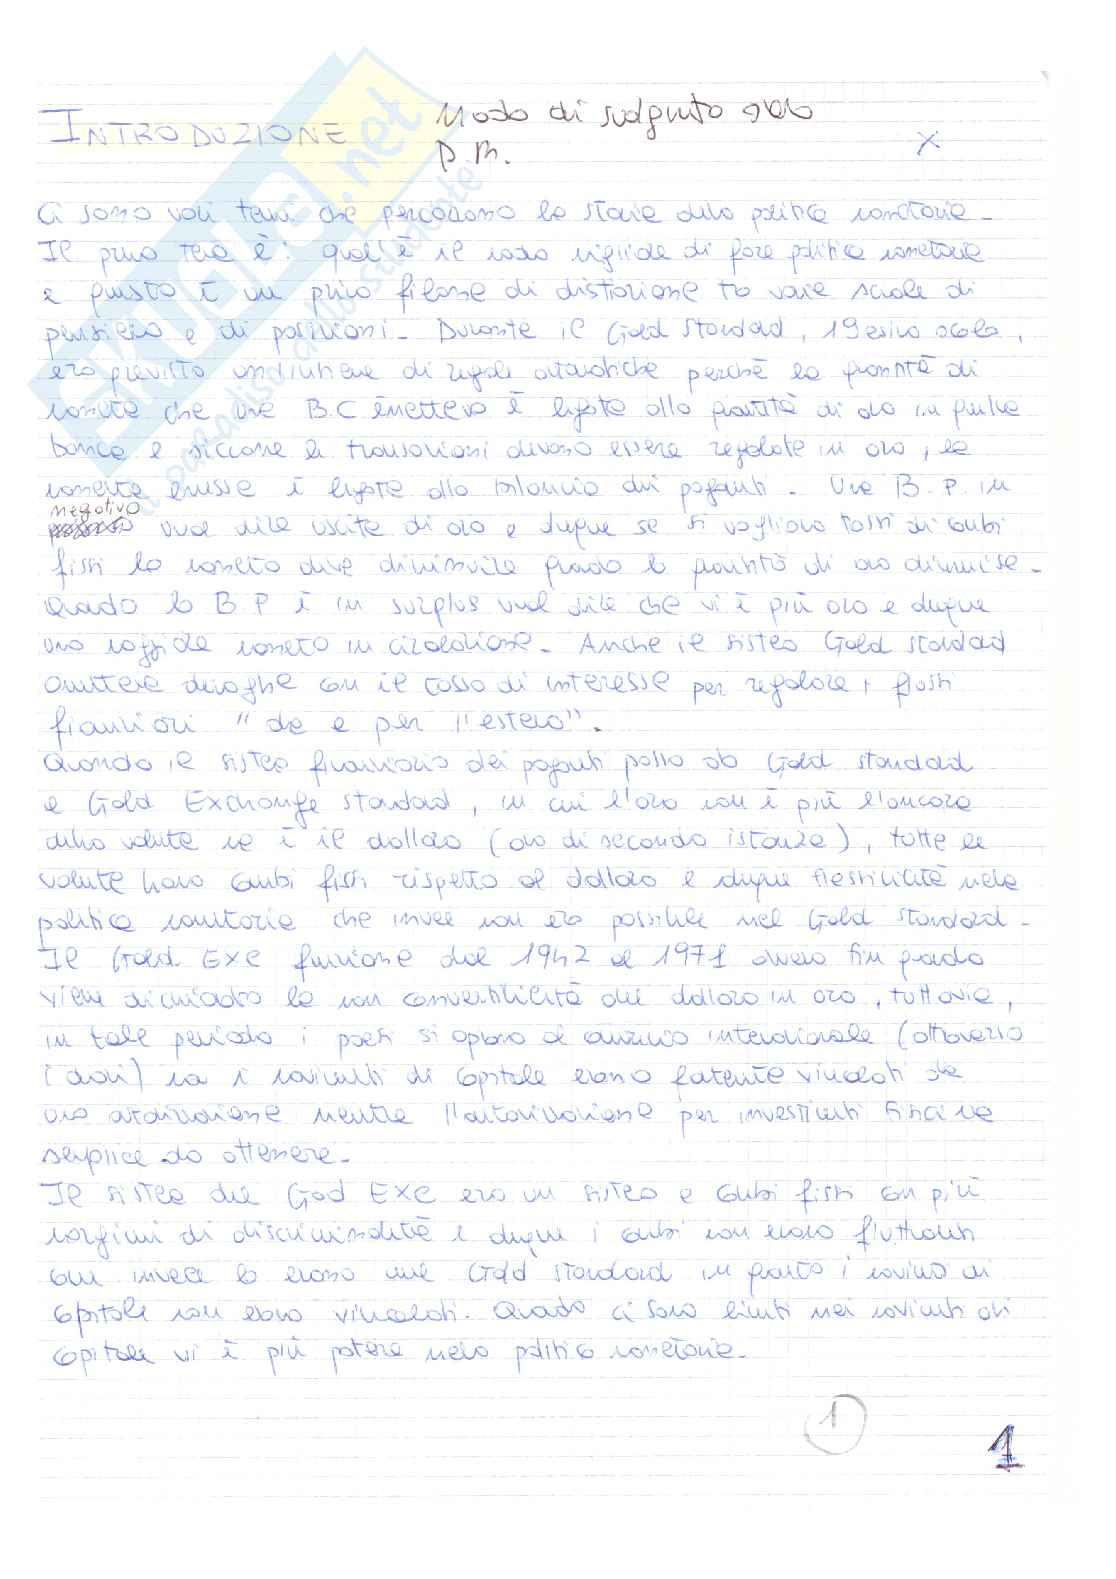 INTRODUZIONE
Modo di svolgimento della
P.M.
X
Ci sono vari temi che percorrono la storia della politica monetaria.
Il primo tema è: qual è il modo migliore di fare politica monetaria
e questo è un primo filone di distinzione tra varie scuole di
pensiero e di posizioni. Durante il Gold Standard, 19esimo secolo,
era previsto un insieme di regole automatiche perchè la quantità di
moneta che una B.C emetteva è legata alla quantità di oro in quella
banca e siccome le transazioni devono essere regolate in oro, la
moneta emessa è legata alla bilancia dei pagamenti. Una B.P. in
negativo
vuol dire uscita di oro e dunque se si vogliono tassi di cambi
fissi la moneta deve diminuire quando la quantità di oro diminuisce.
Quando la B P è in surplus vuol dire che vi è più oro e dunque
una maggiore moneta in circolazione. Anche il sistema Gold standard
ammetteva deroghe con il tasso di interesse per regolare i flussi
finanziari "da e per l'estero".
Quando il sistema finanziario dei pagamenti passa da Gold standard
a Gold Exchange standard, in cui l'oro non è più l'ancora
della valuta ma è il dollaro (oro di seconda istanza), tutte le
valute hanno cambi fissi rispetto al dollaro e dunque flessibilità nella
politica monetaria che invece non era possibile nel Gold standard.
Il Gold EXC funziona dal 1942 al 1971 ovvero fin quando
viene dichiarato la non convertibilità del dollaro in oro, tuttavia,
in tale periodo i paesi si aprono al commercio internazionale (attraverso
i dazi) ma i movimenti di capitale erano fortemente vincolati da
una autorizzazione mentre l'autorizzazione per investimenti fisici era
semplice da ottenere.
Il sistema del Gold EXC era un sistema a cambi fissi con più
margini di discrezionalità e dunque i cambi non erano fluttuanti
come invece lo erano nel Gold standard in quanto i movimenti di
capitale non erano vincolati. Quando ci sono limiti nei movimenti di
capitale vi è più potere nella politica monetaria.
1
1
il paradiso dello studente
SKUOLA.net